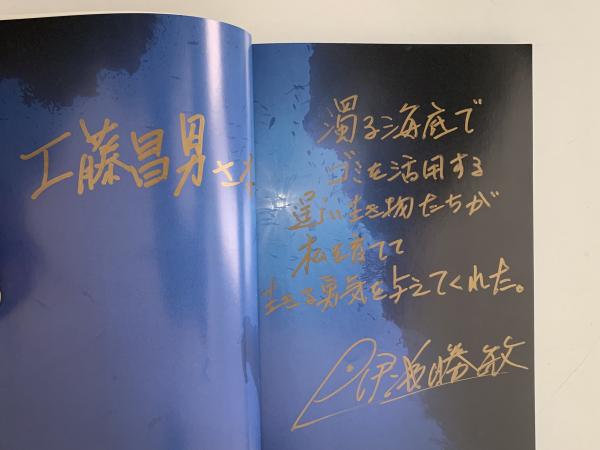 工藤昌男さん
濁る海底で
ゴミを活用する
逞しい生き物たちが
私を育てて
生きる勇気を与えてくれた。
伊藤勝敏